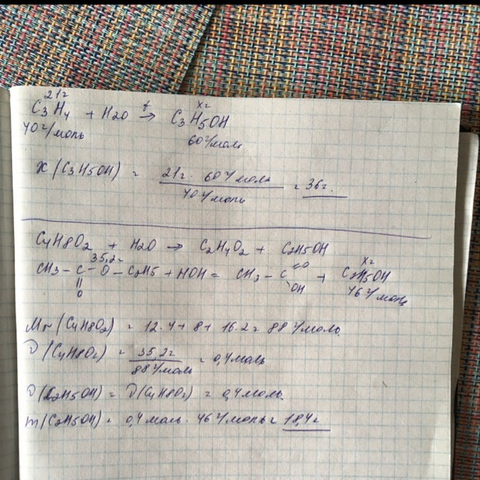 21г      xг
C3H4 + H2O →t C3H5OH
40г/моль      60г/моль
x(C3H5OH) = 21г · 60г/моль / 40г/моль = 36г.
C4H8O2 + H2O → C2H4O2 + C2H5OH
35,2г      xг
CH3 - C - O - C2H5 + HOH = CH3 - C =O + C2H5OH
||      OH      46г/моль
O
Mr(C4H8O2) = 12·4+8+16·2 = 88г/моль.
ν(C4H8O2) = 35,2г / 88г/моль = 0,4моль
ν(C2H5OH) = ν(C4H8O2) = 0,4моль.
m(C2H5OH) = 0,4моль · 46г/моль = 18,4г